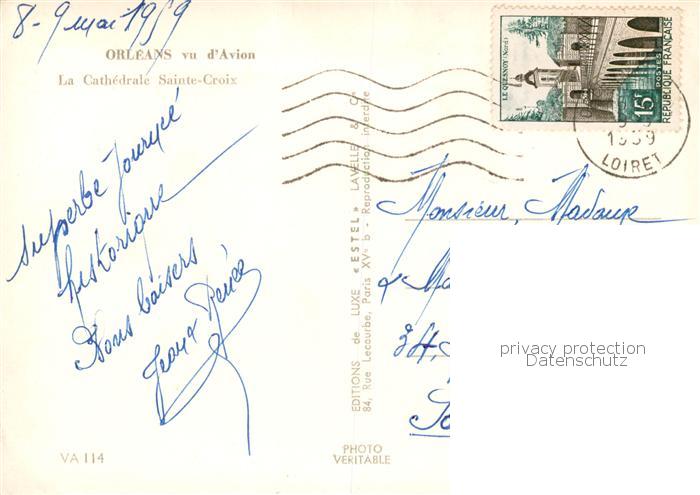 8-9 mai 1959
ORLÉANS vu d'Avion
La Cathédrale Sainte-Croix
Superbe Journée
historique
Bons baisers
Jean & Renée
VA 114
EDITIONS de LUXE "ESTEL" LAVELLE & Cie
84, Rue Lecourbe, Paris XVe b - Reproduction interdite
PHOTO
VERITABLE
LE QUESNOY (Nord)
15F
POSTES
REPUBLIQUE FRANÇAISE
1959
LOIRET
Monsieur, Madame
& Ma
34,
privacy protection
Datenschutz